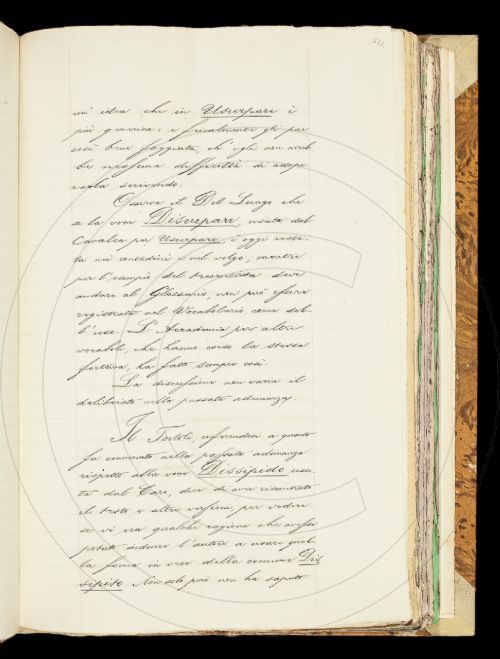 mi idea che in Usurpare è
più generica; e finalmente gli par
così bene foggiata, ch'egli non avreb
be nessuna difficoltà di adope
rarla scrivendo.
Osserva il Del Lungo che
se la voce Disurpare, usata dal
Cavalca per Usurpare, è oggi resta
ta nei contadini e nel volgo, mentre
per l'esempio del trecentista deve
andare al Glossario, non può essere
registrata nel Vocabolario come del
l'uso. L'Accademia per altri
vocaboli, che hanno corso la stessa
fortuna, ha fatto sempre così.
La discussione non varia il
deliberato nella passata adunanza.
Il Tortoli, riferendosi a quanto
fu osservato nella passata adunanza
rispetto alla voce Dissipido usa
ta dal Caro, dice di aver riscontrato
il testo e altre versioni, per vedere
se vi era qualche ragione che avesse
potuto indurre l'autore a usare quel
la forma in vece della comune Dis
sipito. Non solo poi non ha saputo